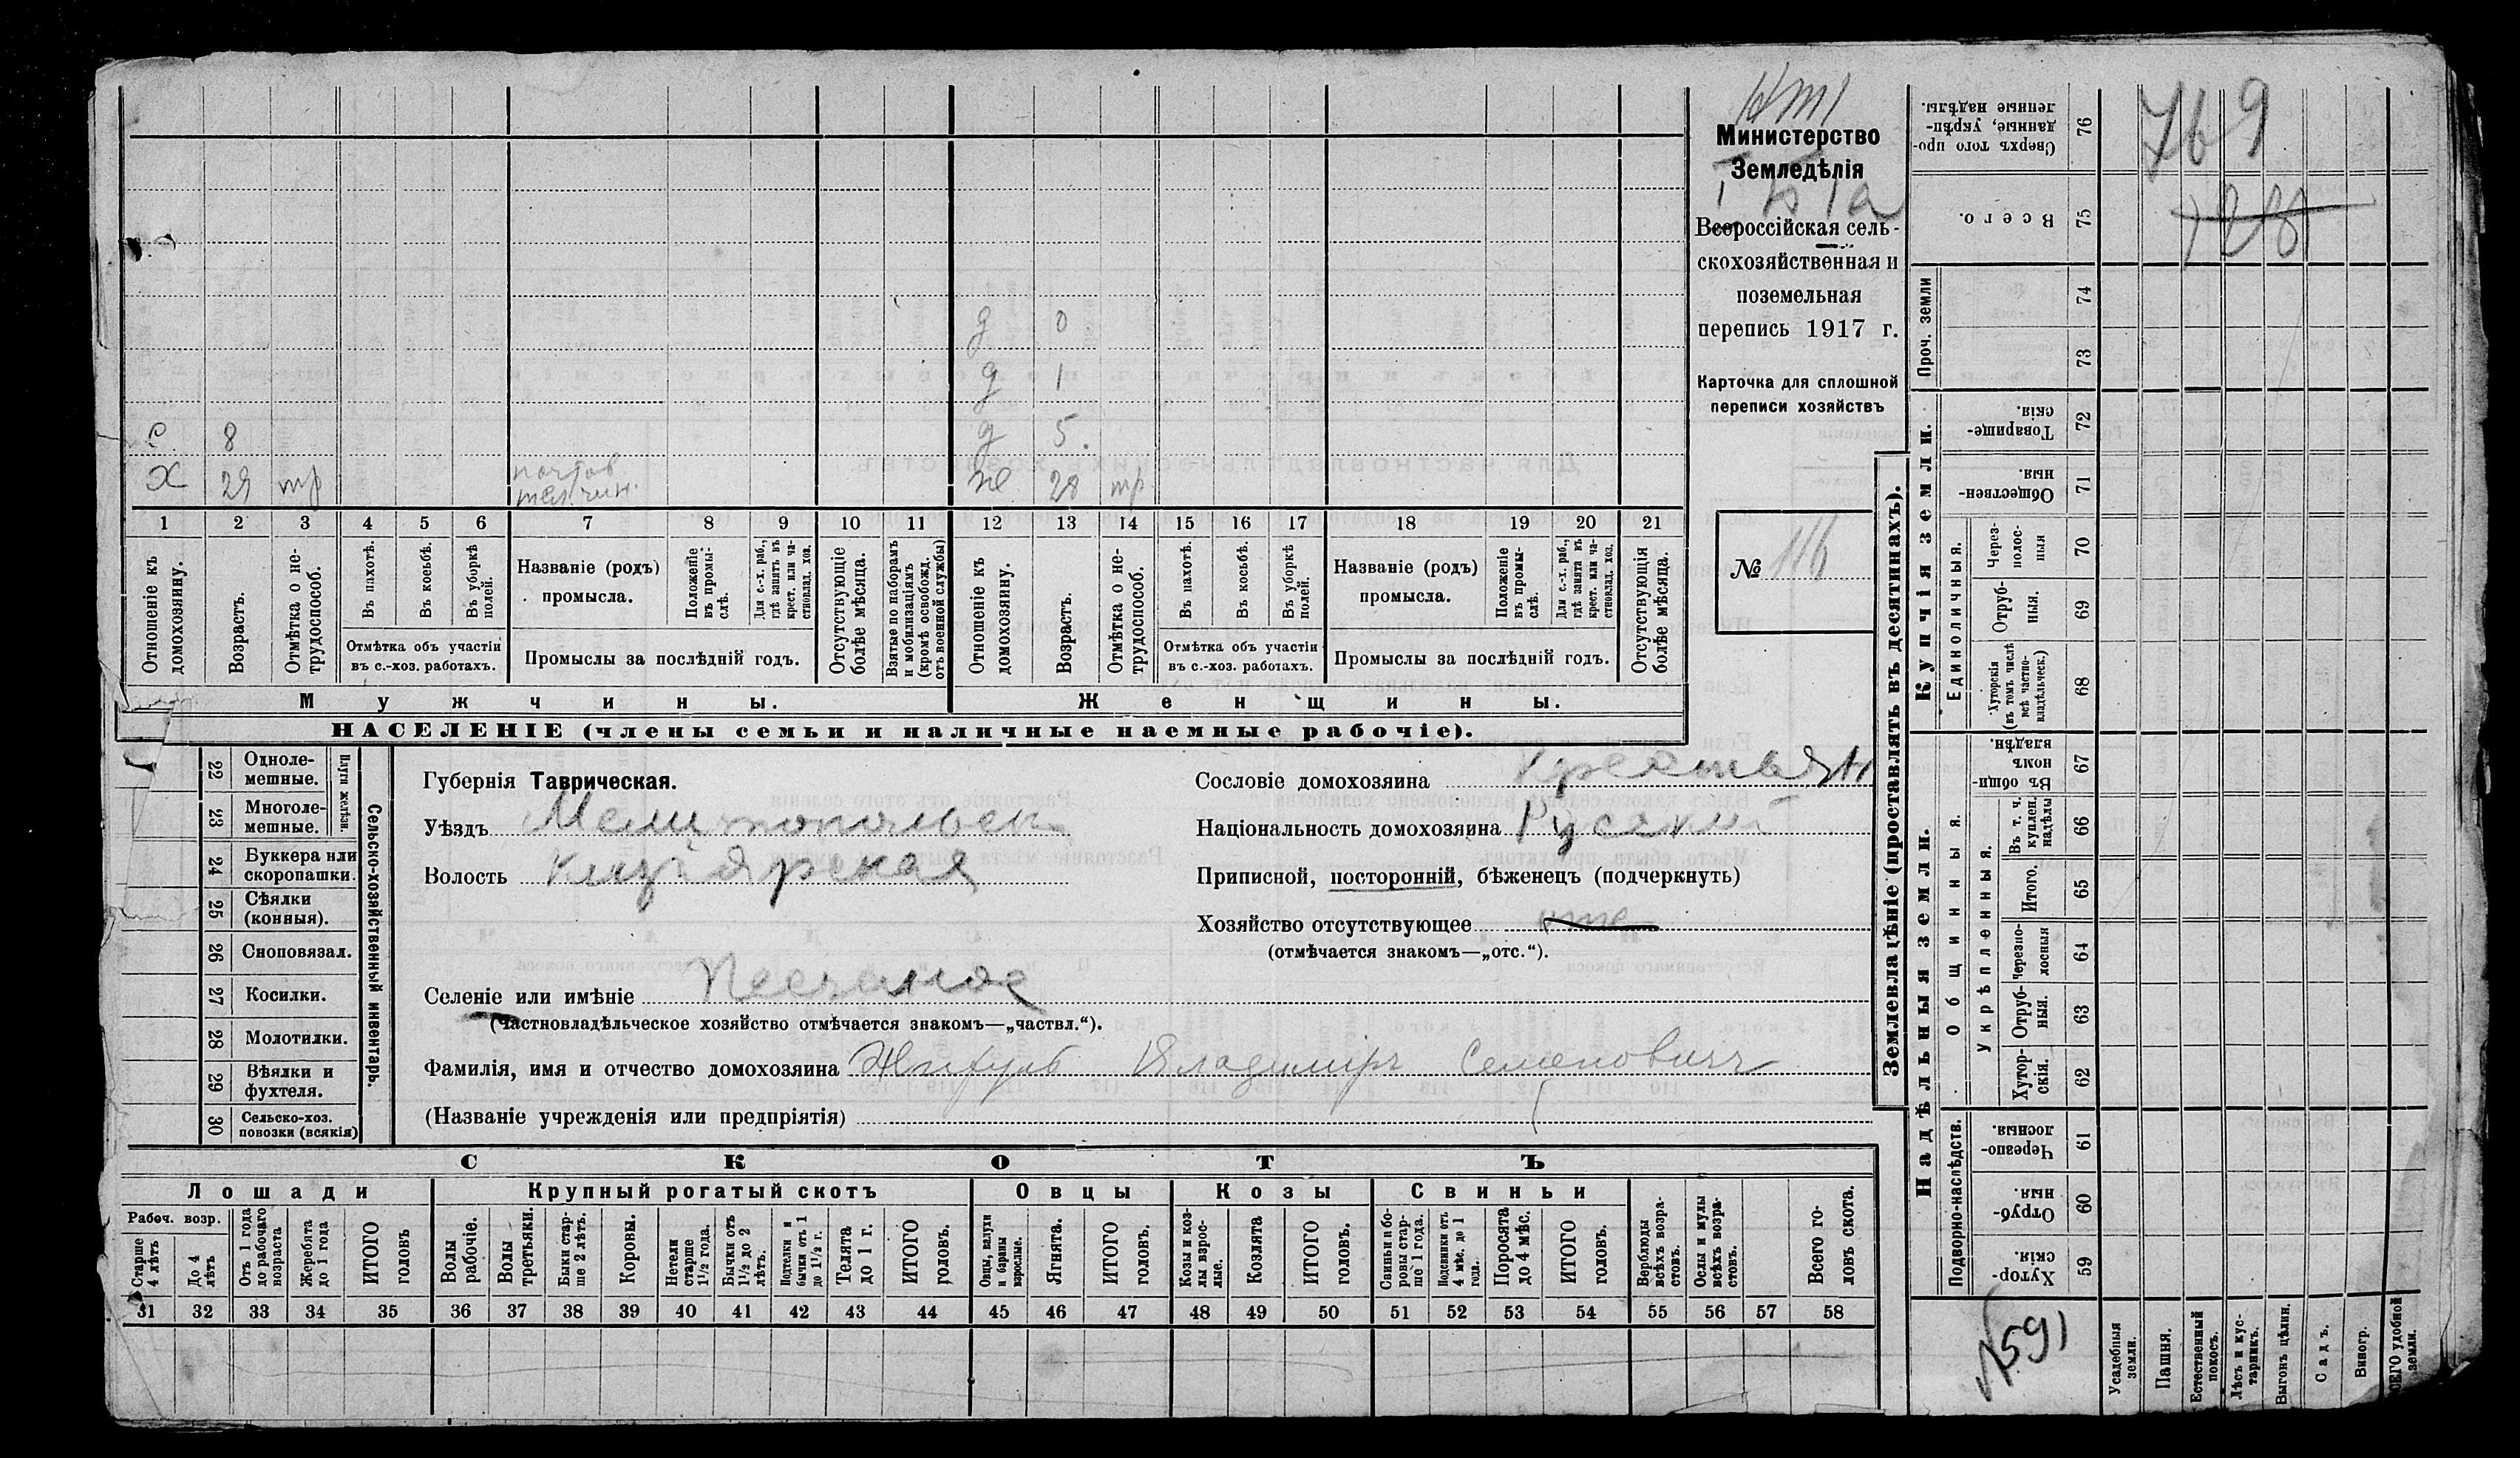 Министерство
Земледѣлія
Всероссійская сель-
скохозяйственная и
поземельная
перепись 1917 г.
Карточка для сплошной
переписи хозяйствъ
№ 116
д 0
д 1
с. 8 д 5.
х 29 тр почтов
тел. чин. ж 28 тр
1 2 3 4 5 6 7 8 9 10 11 12 13 14 15 16 17 18 19 20 21
Отношеніе къ домохозяину.
Возрастъ.
Отмѣтка о не-трудоспособ.
Въ пахотѣ.
Въ косьбѣ.
Въ уборкѣ полей.
Отмѣтка объ участіи
въ с.-хоз. работахъ.
Названіе (родъ)
промысла.
Положеніе въ промы-слѣ.
Для с.-х. раб., гдѣ занятъ въ крест. или ча-стновлад. хоз.
Промыслы за послѣдній годъ.
Отсутствующіе болѣе мѣсяца.
Взятые по наборамъ и мобилизаціямъ (кромѣ освобожд. отъ военной службы)
Отношеніе къ домохозяину.
Возрастъ.
Отмѣтка о не-трудоспособ.
Въ пахотѣ.
Въ косьбѣ.
Въ уборкѣ полей.
Отмѣтка объ участіи
въ с.-хоз. работахъ.
Названіе (родъ)
промысла.
Положеніе въ промы-слѣ.
Для с.-х. раб., гдѣ занята въ крест. или ча-стновлад. хоз.
Промыслы за послѣдній годъ.
Отсутствующія болѣе мѣсяца.
Мужчины. Женщины.
НАСЕЛЕНІЕ (члены семьи и наличные наемные рабочіе).
Сельско-хозяйственный инвентарь.
Плуги желѣзн.
22 Одноле-
мешные.
23 Многоле-
мешные.
24 Буккера или
скоропашки.
25 Сѣялки
(конныя).
26 Сноповязал.
27 Косилки.
28 Молотилки.
29 Вѣялки и
фухтеля.
30 Сельско-хоз.
повозки (всякія)
Губернія Таврическая.
Уѣздъ Мелитопольск
Волость Кизіярская
Сословіе домохозяина крестьян
Національность домохозяина Русскій
Приписной, посторонній, бѣженецъ (подчеркнуть)
Хозяйство отсутствующее
(отмѣчается знакомъ—„отс.“).
Селеніе или имѣніе Песчаное
(Частновладѣльческое хозяйство отмѣчается знакомъ—„частвл.“).
Фамилія, имя и отчество домохозяина Жигуль Владимиръ Семеновичъ
(Названіе учрежденія или предпріятія)
СКОТЪ
Лошади Крупный рогатый скотъ Овцы Козы Свиньи
Рабоч. возр.
Старше 4 лѣтъ
До 4 лѣтъ
Отъ 1 года до рабочаго возраста
Жеребята до 1 года
ИТОГО головъ
Волы рабочіе.
Волы третьяки.
Быки стар-ше 2 лѣтъ.
Коровы.
Нетели старше 1½ года.
Бычки отъ 1½ до 2 лѣтъ.
Подтелки и бычки отъ 1 до 1½ г.
Телята до 1 г.
ИТОГО головъ.
Овцы, валухи и бараны взрослые.
Ягнята.
ИТОГО головъ.
Козы и коз-лы взрос-лые.
Козлята
ИТОГО головъ.
Свиньи и бо-ровы стар-ше 1 года.
Подсвинки отъ 4 мѣс. до 1 года.
Поросята до 4 мѣс.
ИТОГО головъ.
Верблюды всѣхъ возра-стовъ.
Ослы и мулы всѣхъ возра-стовъ.
Всего го-ловъ скота.
31 32 33 34 35 36 37 38 39 40 41 42 43 44 45 46 47 48 49 50 51 52 53 54 55 56 57 58
Землевладѣніе (проставлять въ десятинахъ).
Сверхъ того про-данные, укрѣп-ленные надѣлы. 76
769
Всего. 75
128
Проч. земли 74
73
Купчія земли.
Товарище-скія. 72
Обществен-ныя. 71
Единоличныя.
Через-полос-ныя 70
Отруб-ныя. 69
Хуторскія (въ томъ числѣ всѣ частно-владѣльческ.) 68
Надѣльныя земли.
Общинныя.
Въ общин-номъ владѣн. 67
Укрѣпленныя.
Въ т. ч. куплен. надѣлы 66
Итого. 65
Черезпо-лосныя 64
Отруб-ныя. 63
Хутор-скія. 62
Подворно-наслѣдств.
Черезпо-лосныя. 61
Отруб-ныя. 60
Хутор-скія. 59
№591
Усадебныя земли.
Пашня.
Естественный покосъ.
Лѣсъ и кус-тарникъ.
Выгонъ цѣлин.
Садъ.
Виногр.
удобной земли.